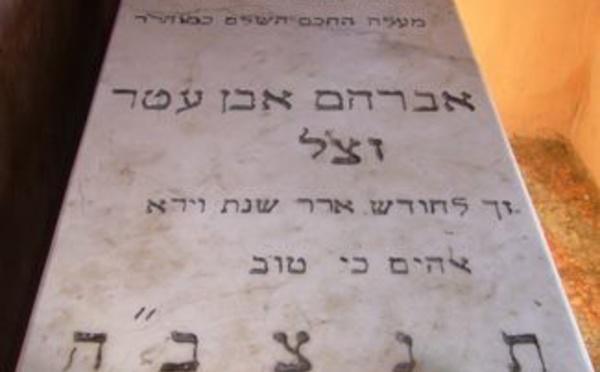 מעלת החכם השלם כמוהר׳ר
אברהם אבן עטר
זצ׳ל
זך לחודש אדר שנת וירא
אהים כי טוב
ת נ צ ב״ ה